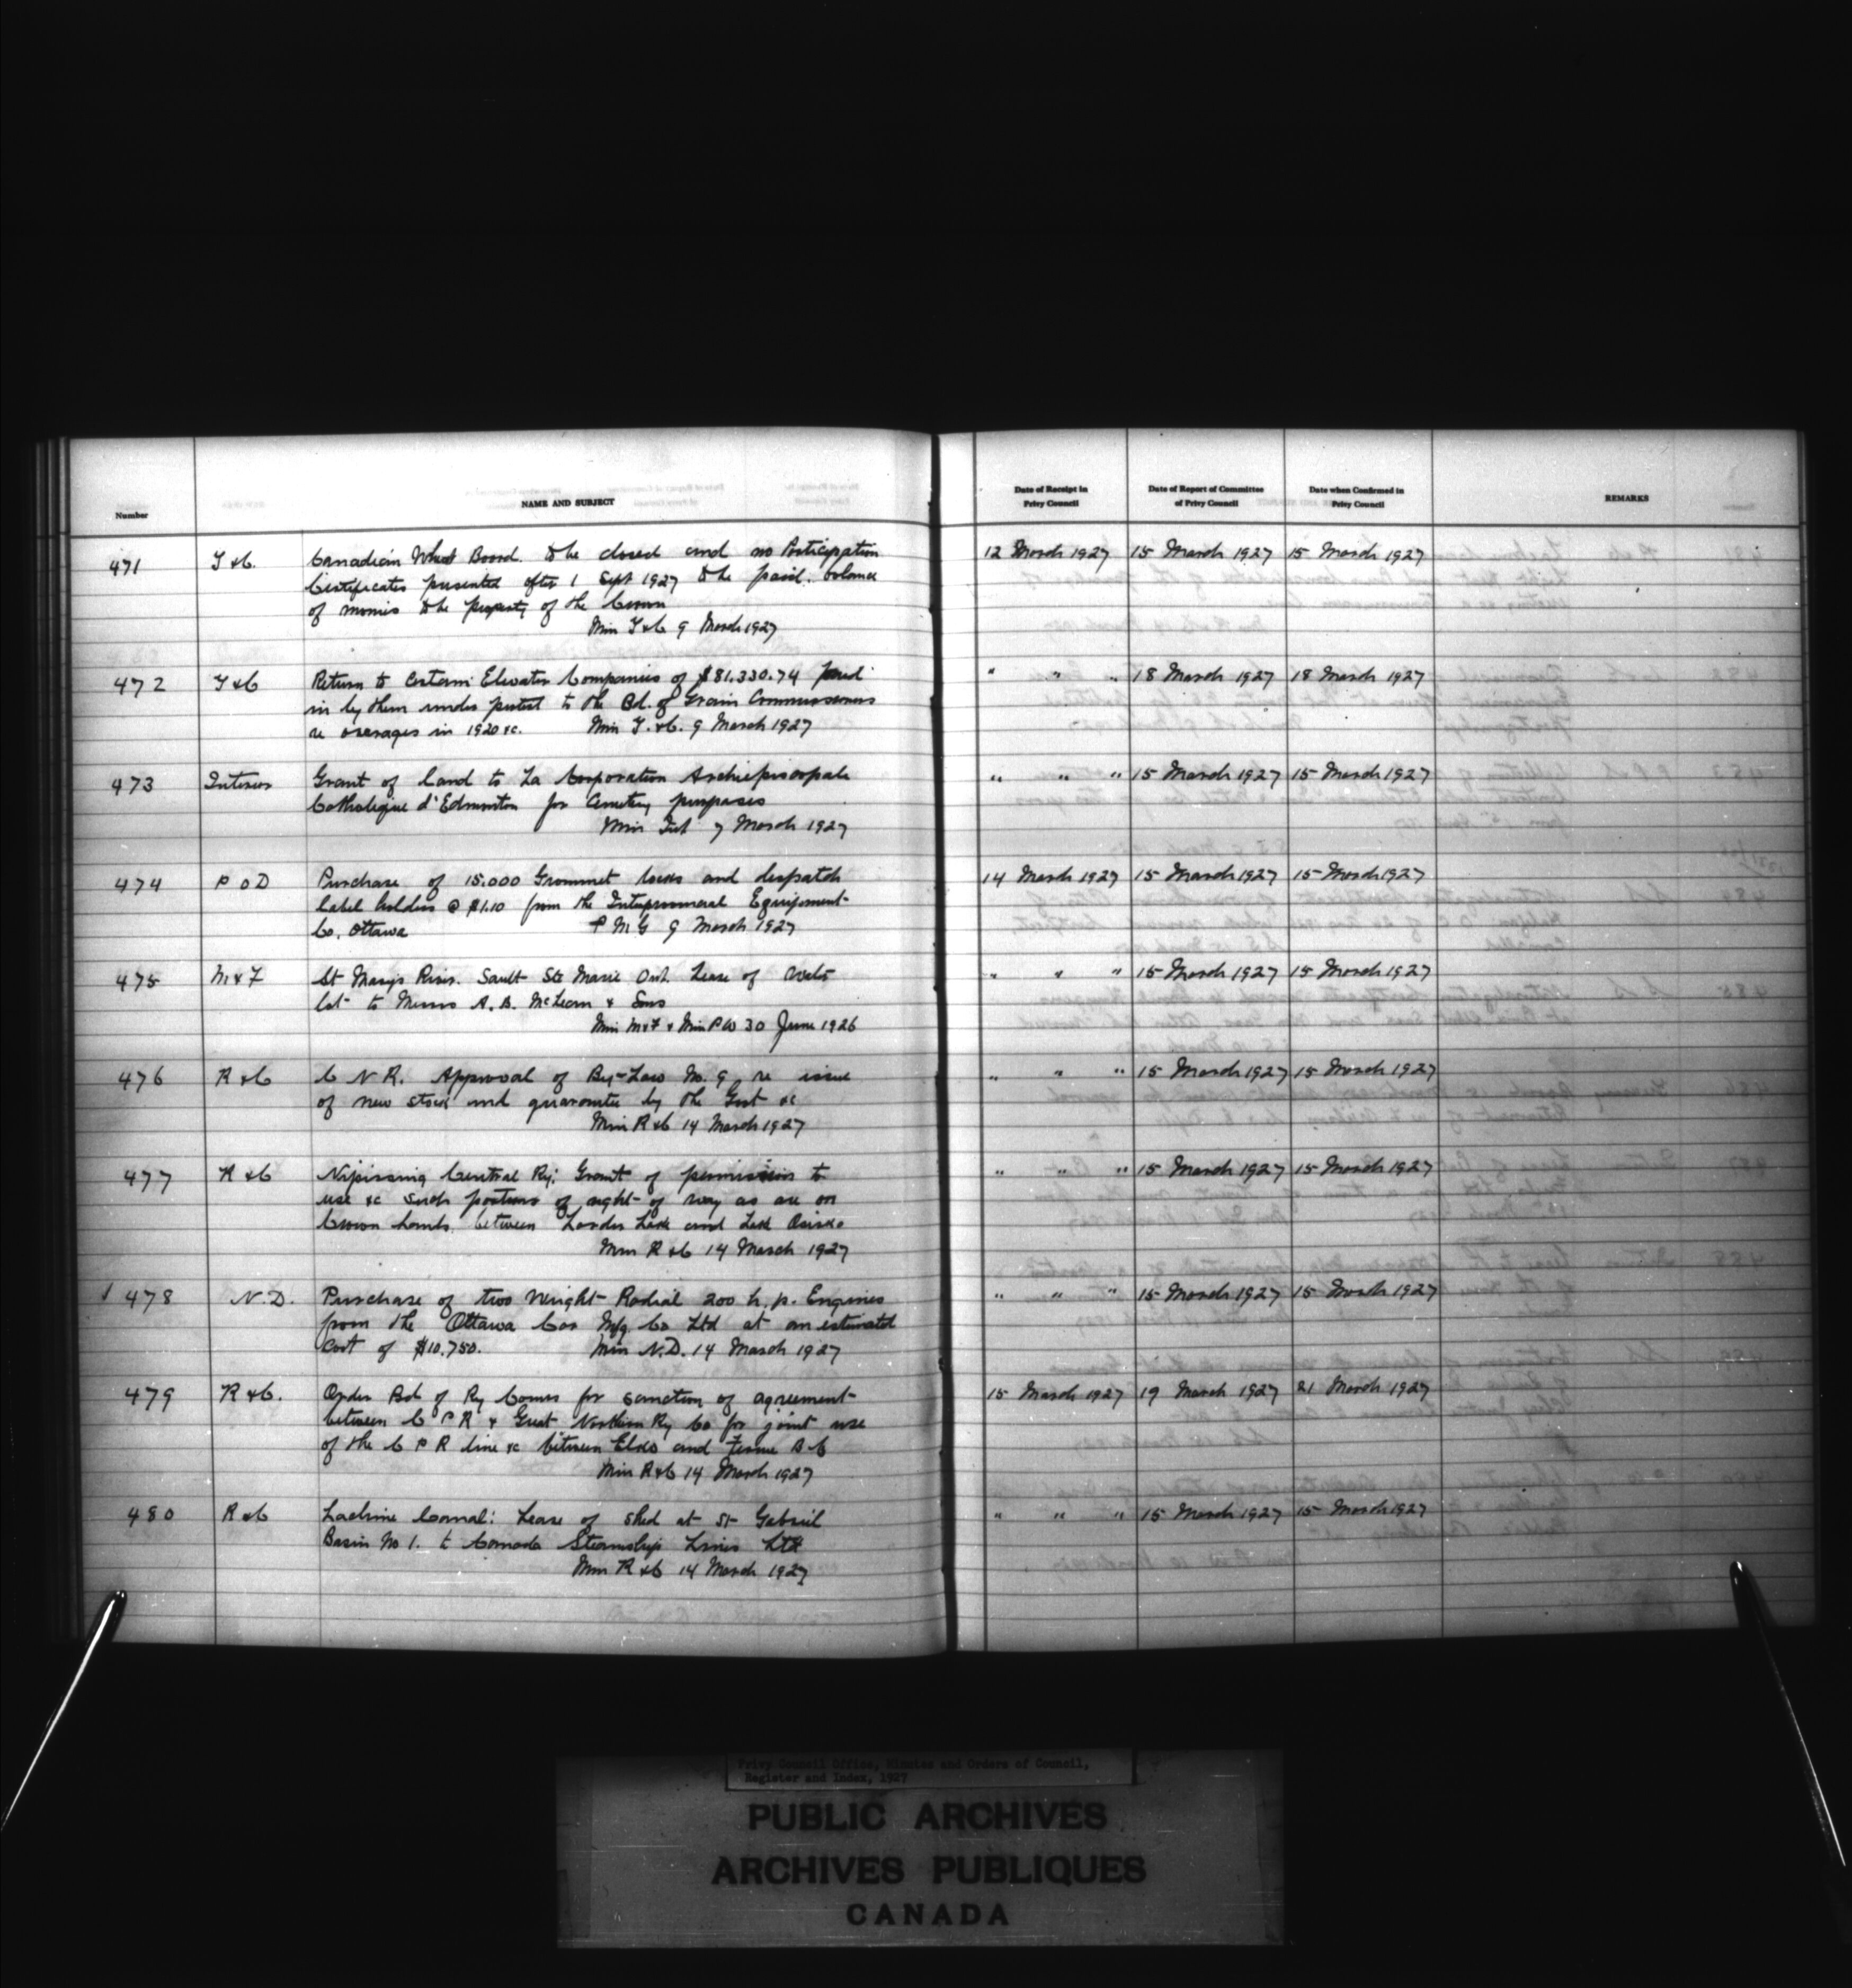 Number
NAME AND SUBJECT
Date of Receipt in Privy Council
Date of Report of Committee of Privy Council
Date when Confirmed in Privy Council
REMARKS
471 T &C. Canadian Wheat Board. to be closed and no Participation 12 March 1927 15 March 1927 15 March 1927
Certificates presented after 1 Sept 1927 to be paid. balance
of monies to be property of the Crown
Min T&C 9 March 1927
472 T &C Return to Certain Elevator Companies of $81.330.74 paid " " " 18 March 1927 18 March 1927
in by them under protest to the Bd. of Grain Commissioners
re overages in 1920 &c. Min T. &C. 9 March 1927
473 Interior Grant of land to La Corporation Archiepiscopale " " " 15 March 1927 15 March 1927
Catholique d'Edmonton for Cemetery purposes
Min Int 7 March 1927
474 P O D Purchase of 15.000 Grommet locks and despatch 14 March 1927 15 March 1927 15 March 1927
label holders @ $1.10 from the Interprovincial Equipment
Co. Ottawa P M G 9 March 1927
475 M & F St Marys River. Sault Ste Marie Ont. Lease of water " " " 15 March 1927 15 March 1927
lot to Messrs A. B. McLean & Sons
Min M&F & Min P W 30 June 1926
476 R &C C N R. Approval of By-Law No. 9 re issue " " " 15 March 1927 15 March 1927
of new stock and guarantee by the Govt &c
Min R &C 14 March 1927
477 R &C Nipissing Central Ry: Grant of permission to " " " 15 March 1927 15 March 1927
use &c such portions of right of way as are on
Crown Lands between Larder Lake and Lake Osisko
Min R &C 14 March 1927
478 N.D. Purchase of two Wright Radial 200 h.p. Engines " " " 15 March 1927 15 March 1927
from the Ottawa Car Mfg Co Ltd at an estimated
cost of $10.750. Min N.D. 14 March 1927
479 R &C. Order Bd of Ry Comrs for sanction of agreement 15 March 1927 19 March 1927 21 March 1927
between C P R & Great Northern Ry Co for joint use
of the C P R line &c between Elko and Fernie B C
Min R&C 14 March 1927
480 R &C Lachine Canal: Lease of shed at St Gabriel " " " 15 March 1927 15 March 1927
Basin No 1. to Canada Steamship Lines Ltd
Min R &C 14 March 1927
Privy Council Office, Minutes and Orders of Council,
Register and Index, 1927
PUBLIC ARCHIVES
ARCHIVES PUBLIQUES
CANADA